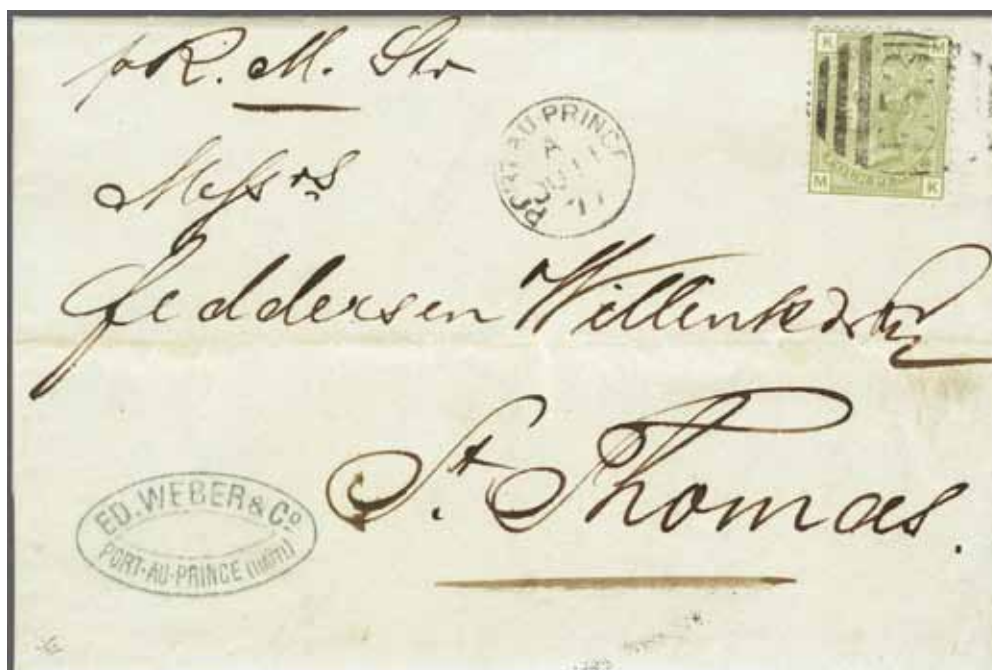 pr R. M. Str
K M
PORT AU PRINCE
A
Messrs
M K
Feddersen Willink & Co
St. Thomas.
ED. WEBER & Co
PORT-AU-PRINCE (HAITI)